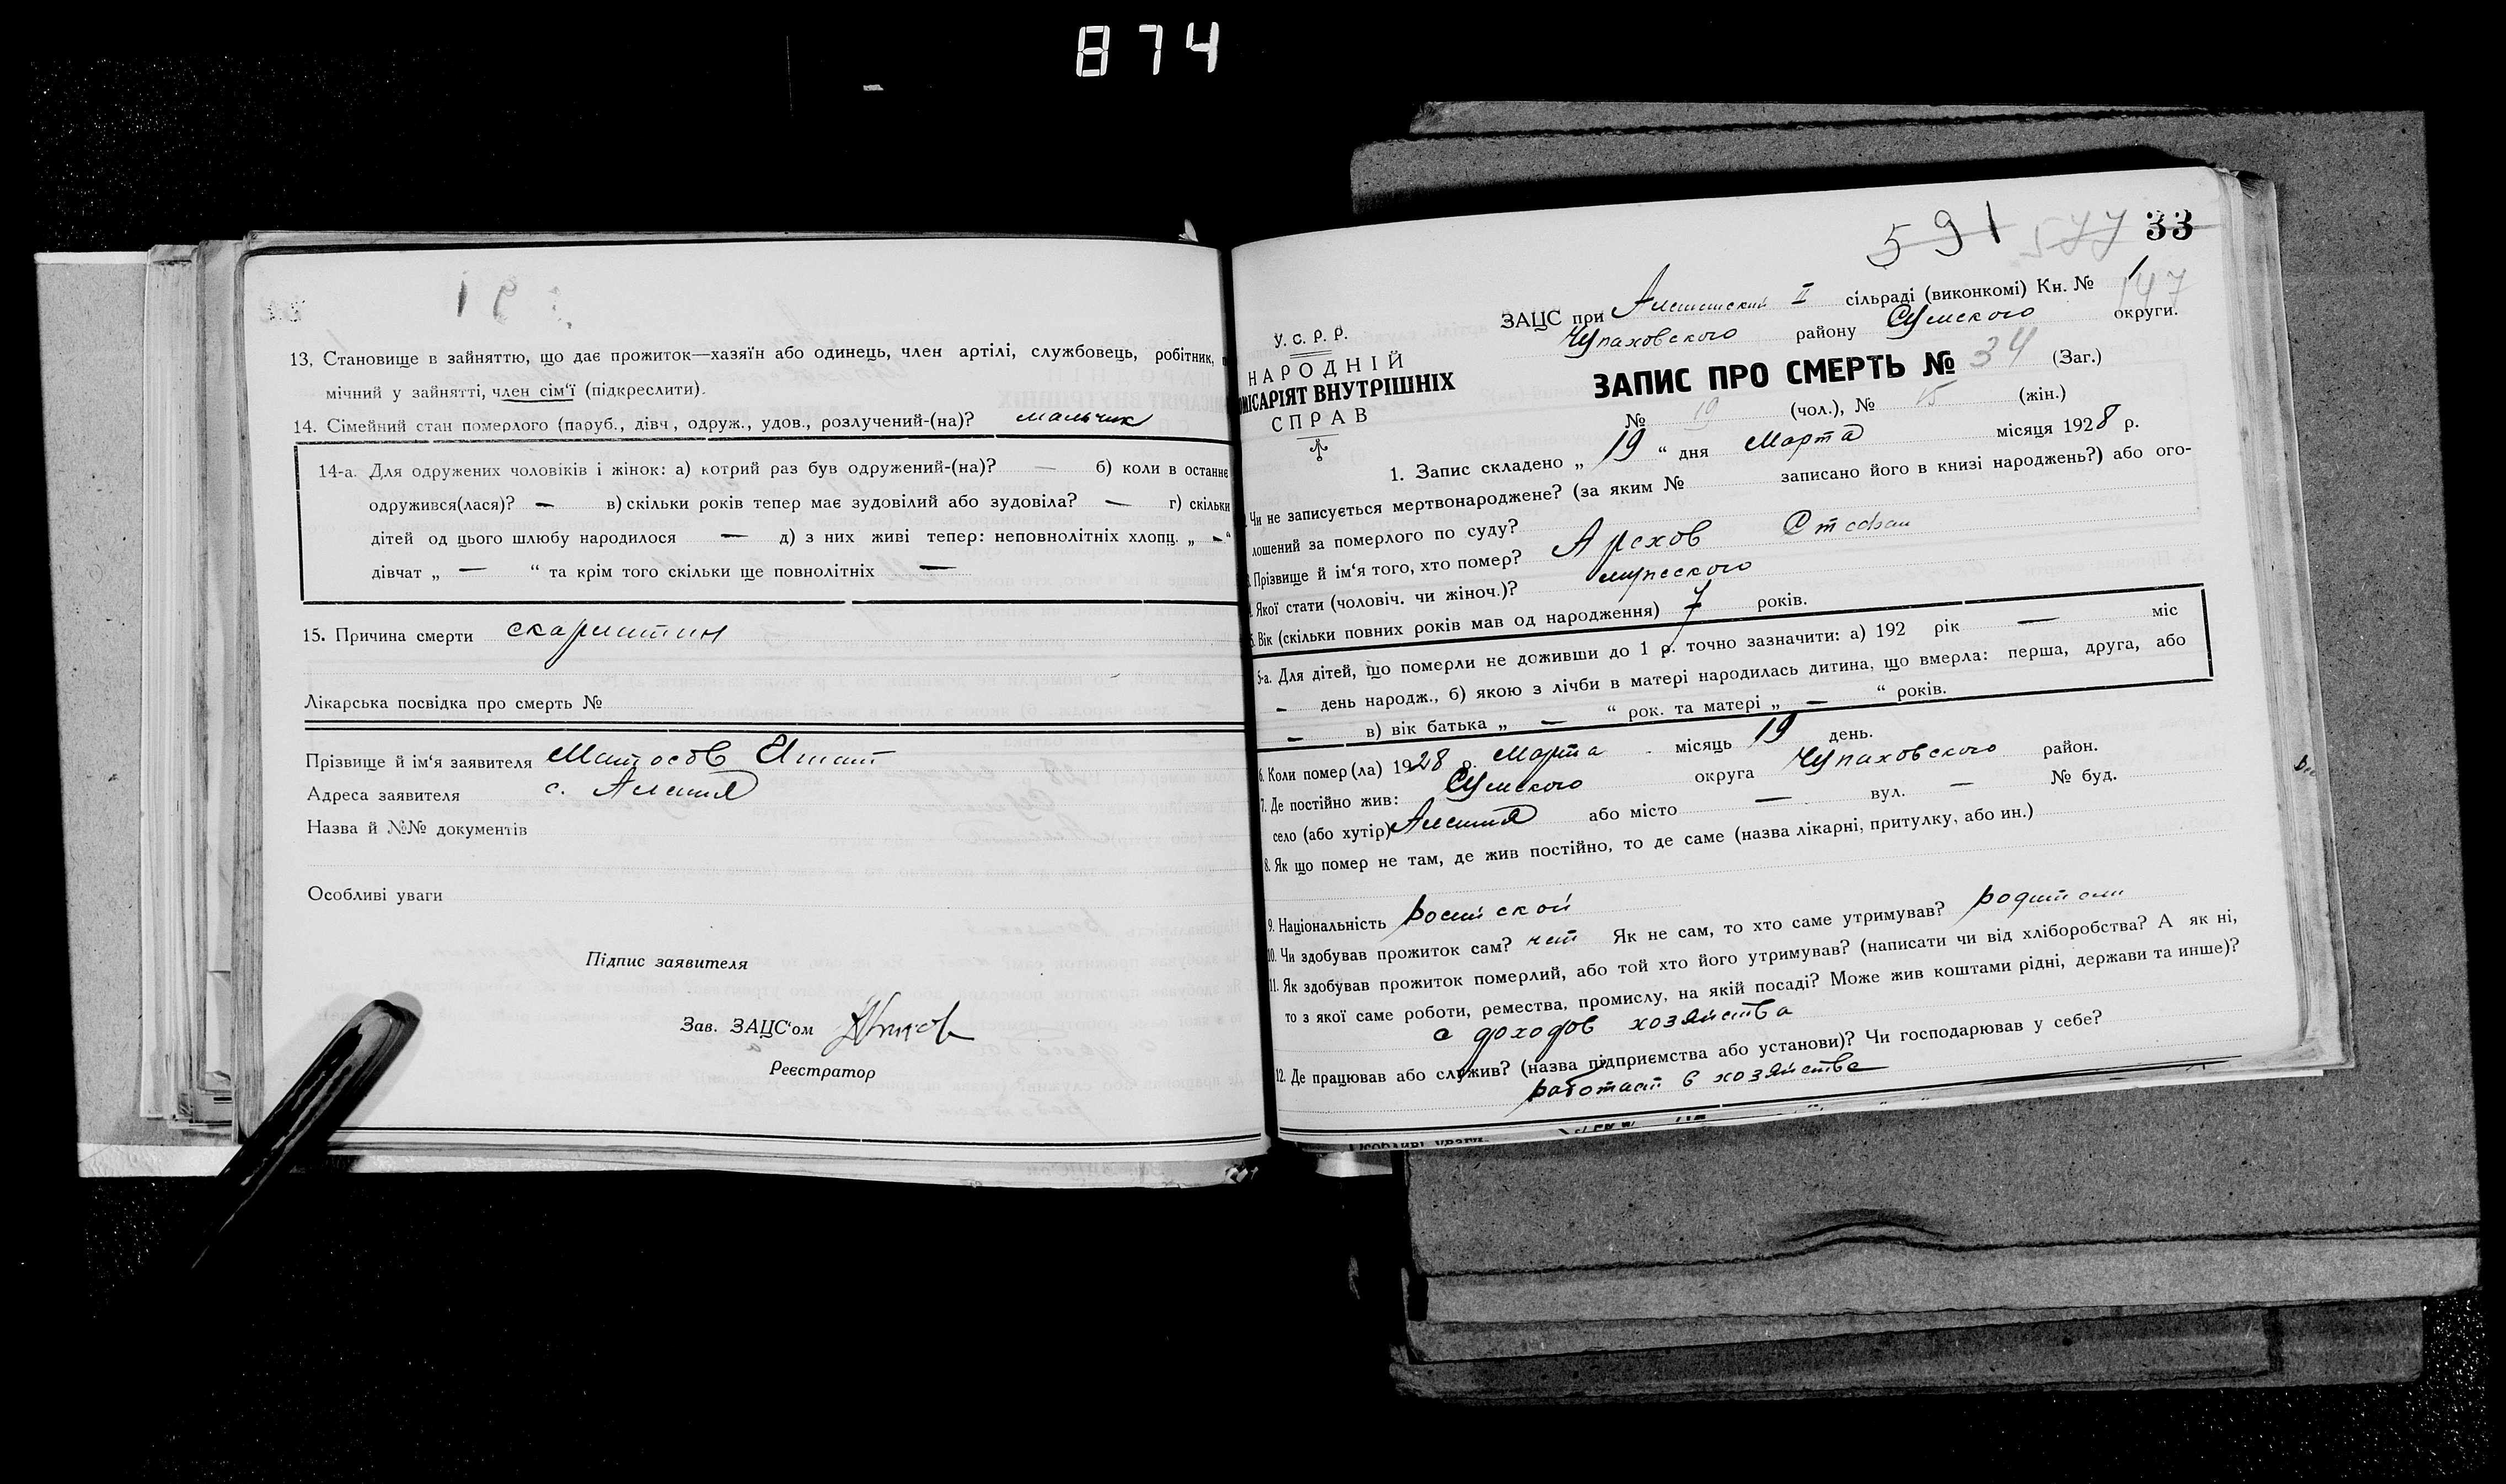 874
13. Становище в зайняттю, що дає прожиток—хазяїн або одинець, член артілі, службовець, робітник,
мічний у зайнятті, член сім'ї (підкреслити).
14. Сімейний стан померлого (паруб., дівч., одруж., удов., розлучений-(на)? мальчик
14-а. Для одружених чоловіків і жінок: а) котрий раз був одружений-(на)? — б) коли в останнє
одружився(лася)? — в) скільки років тепер має зудовілий або зудовіла? — г) скільки
дітей од цього шлюбу народилося — д) з них живі тепер: неповнолітніх хлопц. „ — “
дівчат „ — “ та крім того скільки ще повнолітніх —
15. Причина смерти скарлитин
Лікарська посвідка про смерть №
Прізвище й ім'я заявителя Матосов Игнат
Адреса заявителя с. Алешня
Назва й №№ документів
Особливі уваги
Підпис заявителя
Зав. ЗАЦС'ом
Реєстратор
591 577 33
У. С. Р. Р.
НАРОДНІЙ
МІСАРІЯТ ВНУТРІШНІХ
СПРАВ
ЗАЦС при Алешнский II сільраді (виконкомі) Кн. № 147
Чупаховского району Сумского округи.
ЗАПИС ПРО СМЕРТЬ № 34 (Заг.)
№ 19 (чол.), № 15 (жін.)
1. Запис складено „ 19 “ дня Марта місяця 1928 р.
Чи не записується мертвонароджене? (за яким № записано його в книзі народжень?) або ого-
лошений за померлого по суду?
Прізвище й ім'я того, хто помер? Арехов Стефан
Якої стати (чоловіч. чи жіноч.)? мужеского
5. Вік (скільки повних років мав од народження) 7 років.
5-а. Для дітей, що померли не доживши до 1 р. точно зазначити: а) 192 рік — міс
— день народж., б) якою з лічби в матері народилась дитина, що вмерла: перша, друга, або
— в) вік батька „ — “ рок. та матері „ — “ років.
6. Коли помер(ла) 1928 р. Марта місяць 19 день.
7. Де постійно жив: Сумского округа Чупаховского район.
село (або хутір) Алешня або місто — вул. — № буд.
8. Як що помер не там, де жив постійно, то де саме (назва лікарні, притулку, або ин.)
9. Національність
10. Чи здобував прожиток сам? нет Як не сам, то хто саме утримував? родители
11. Як здобував прожиток померлий, або той хто його утримував? (написати чи від хліборобства? А як ні,
то з якої саме роботи, ремества, промислу, на якій посаді? Може жив коштами рідні, держави та инше)?
с доходов хозяйства
12. Де працював або служив? (назва підприємства або установи)? Чи господарював у себе?
работает в хозяйстве